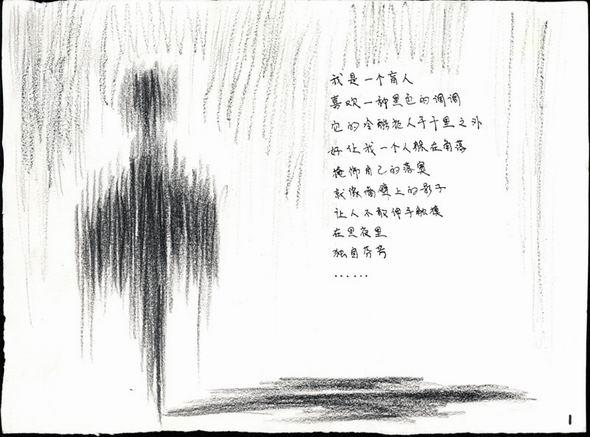 我是一个盲人
喜欢一种黑色的调调
它的冷酷拒人于千里之外
好让我一个人躲在角落
掩饰自己的落寞
就像面壁上的影子
让人不敢伸手触摸
在黑夜里
独自芬芳
……
1